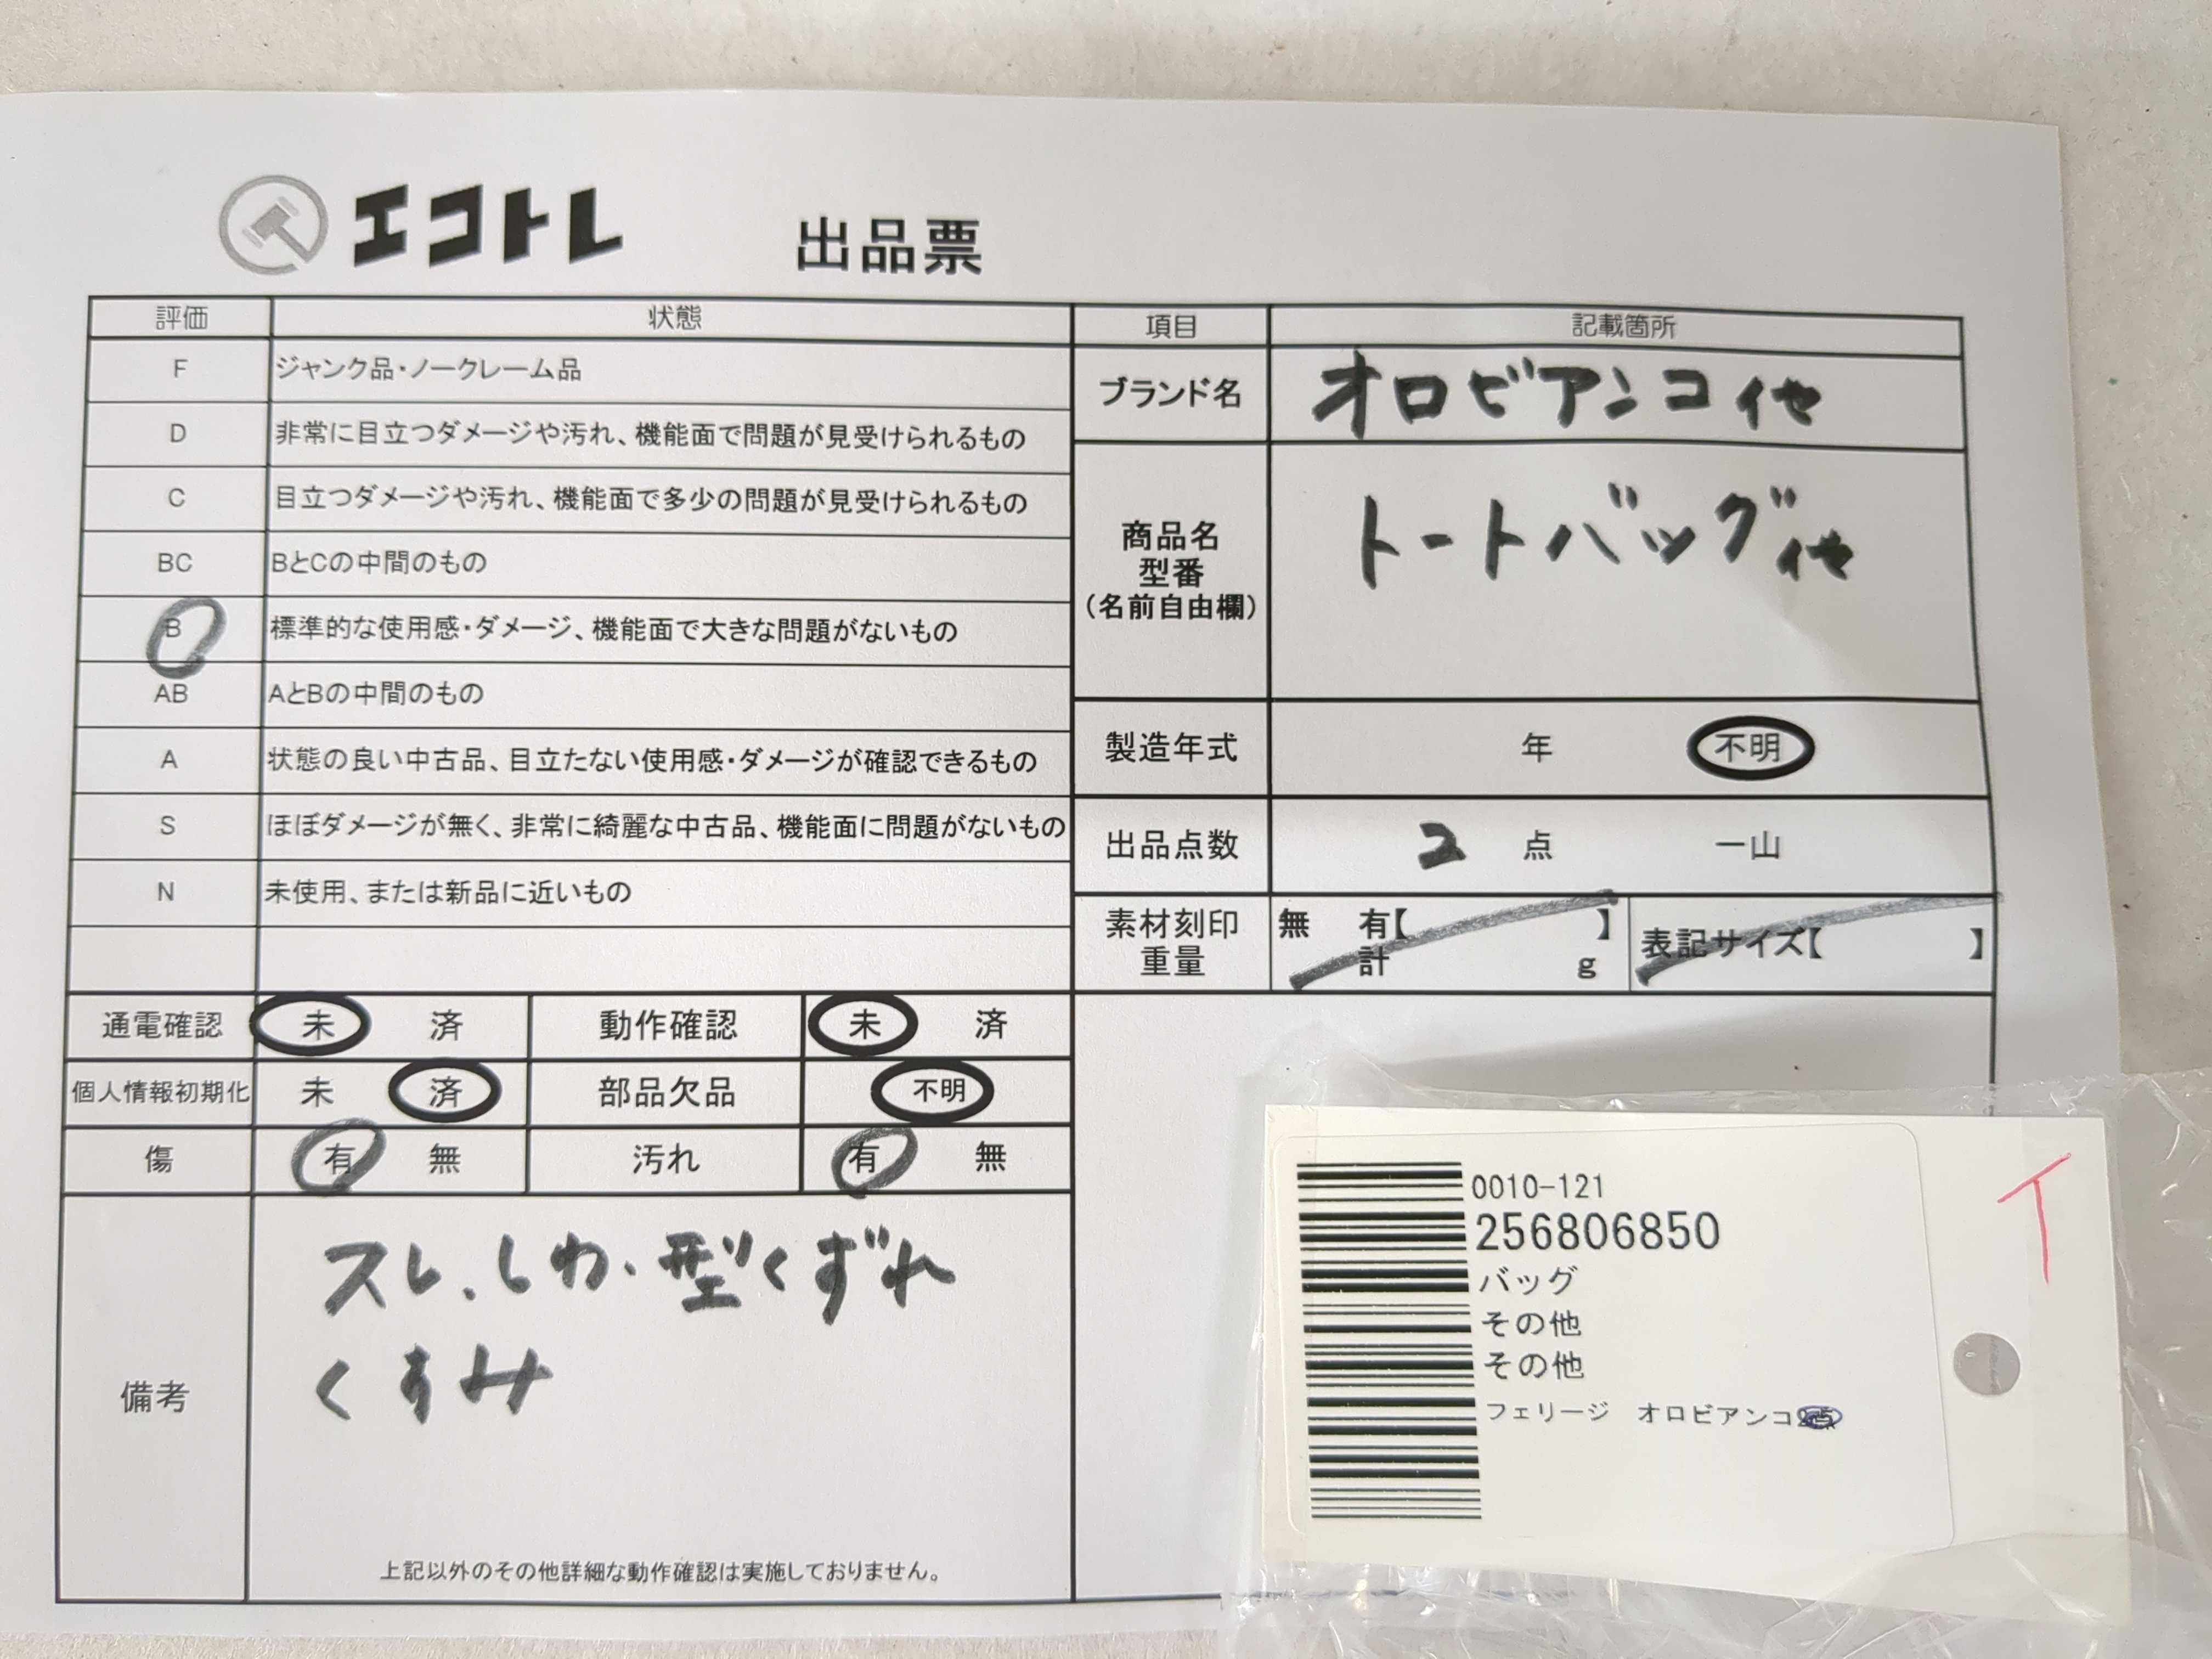 エコトレ 出品票
評価 状態
F ジャンク品・ノークレーム品
D 非常に目立つダメージや汚れ、機能面で問題が見受けられるもの
C 目立つダメージや汚れ、機能面で多少の問題が見受けられるもの
BC BとCの中間のもの
B 標準的な使用感・ダメージ、機能面で大きな問題がないもの
AB AとBの中間のもの
A 状態の良い中古品、目立たない使用感・ダメージが確認できるもの
S ほぼダメージが無く、非常に綺麗な中古品、機能面に問題がないもの
N 未使用、または新品に近いもの
項目 記載箇所
ブランド名 オロビアンコ 他
商品名
型番
（名前自由欄）
トートバッグ 他
製造年式 年 不明
出品点数 2 点 一山
素材刻印
重量
無 有【 】
計 g
表記サイズ【 】
通電確認 未 済 動作確認 未 済
個人情報初期化 未 済 部品欠品 不明
傷 有 無 汚れ 有 無
備考
スレ、しわ・型くずれ
くすみ
上記以外のその他詳細な動作確認は実施しておりません。
0010-121
256806850
バッグ
その他
その他
フェリージ オロビアンコ